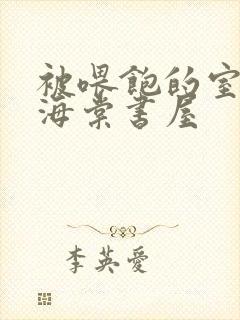 被喂饱的室
海棠书屋
李英爱